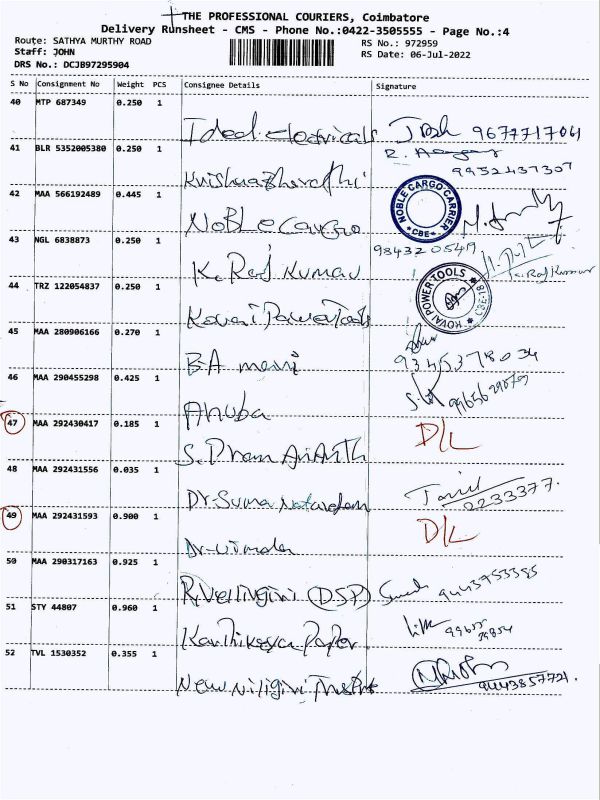 THE PROFESSIONAL COURIERS, Coimbatore
Delivery Runsheet - CMS - Phone No.:0422-3505555 - Page No.:4
Route: SATHYA MURTHY ROAD
RS No.: 972959
Staff: JOHN
RS Date: 06-Jul-2022
DRS No.: DCJB97295904
S No Consignment No Weight PCS Consignee Details Signature
40 MTP 687349 0.250 1
Ideal electricals
41 BLR 5352005380 0.250 1
R.
9952437307
42 MAA 566192489 0.445 1
NOBLE CARGO CARRIER
* CBE *
Noble Cargo
43 NGL 6838873 0.250 1
9843205419
K. Raj Kumar
44 TRZ 122054837 0.250 1
KOVAI POWER TOOLS
CBE-18
Kovai Power Tools
45 MAA 280906166 0.270 1
B.A
9345378034
46 MAA 290455298 0.425 1
Anuba
47 MAA 292430417 0.185 1
D/L
S.
48 MAA 292431556 0.035 1
Dr. Suma Natarajan
2233377.
49 MAA 292431593 0.900 1
D/L
Dr. Vimala
50 MAA 290317163 0.925 1
R. Vellingiri (DSP)
9443953385
51 STY 44807 0.960 1
Karthikeya Paper
52 TVL 1530352 0.355 1
New Niligiri
9443857721.